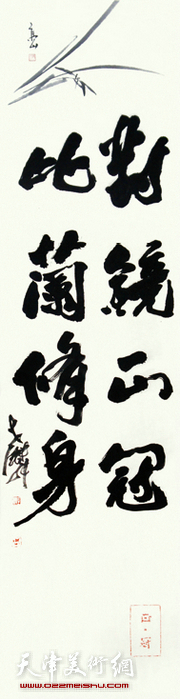 對鏡正冠
比蘭修身
正·冠
天津美術網
www.022meishu.com